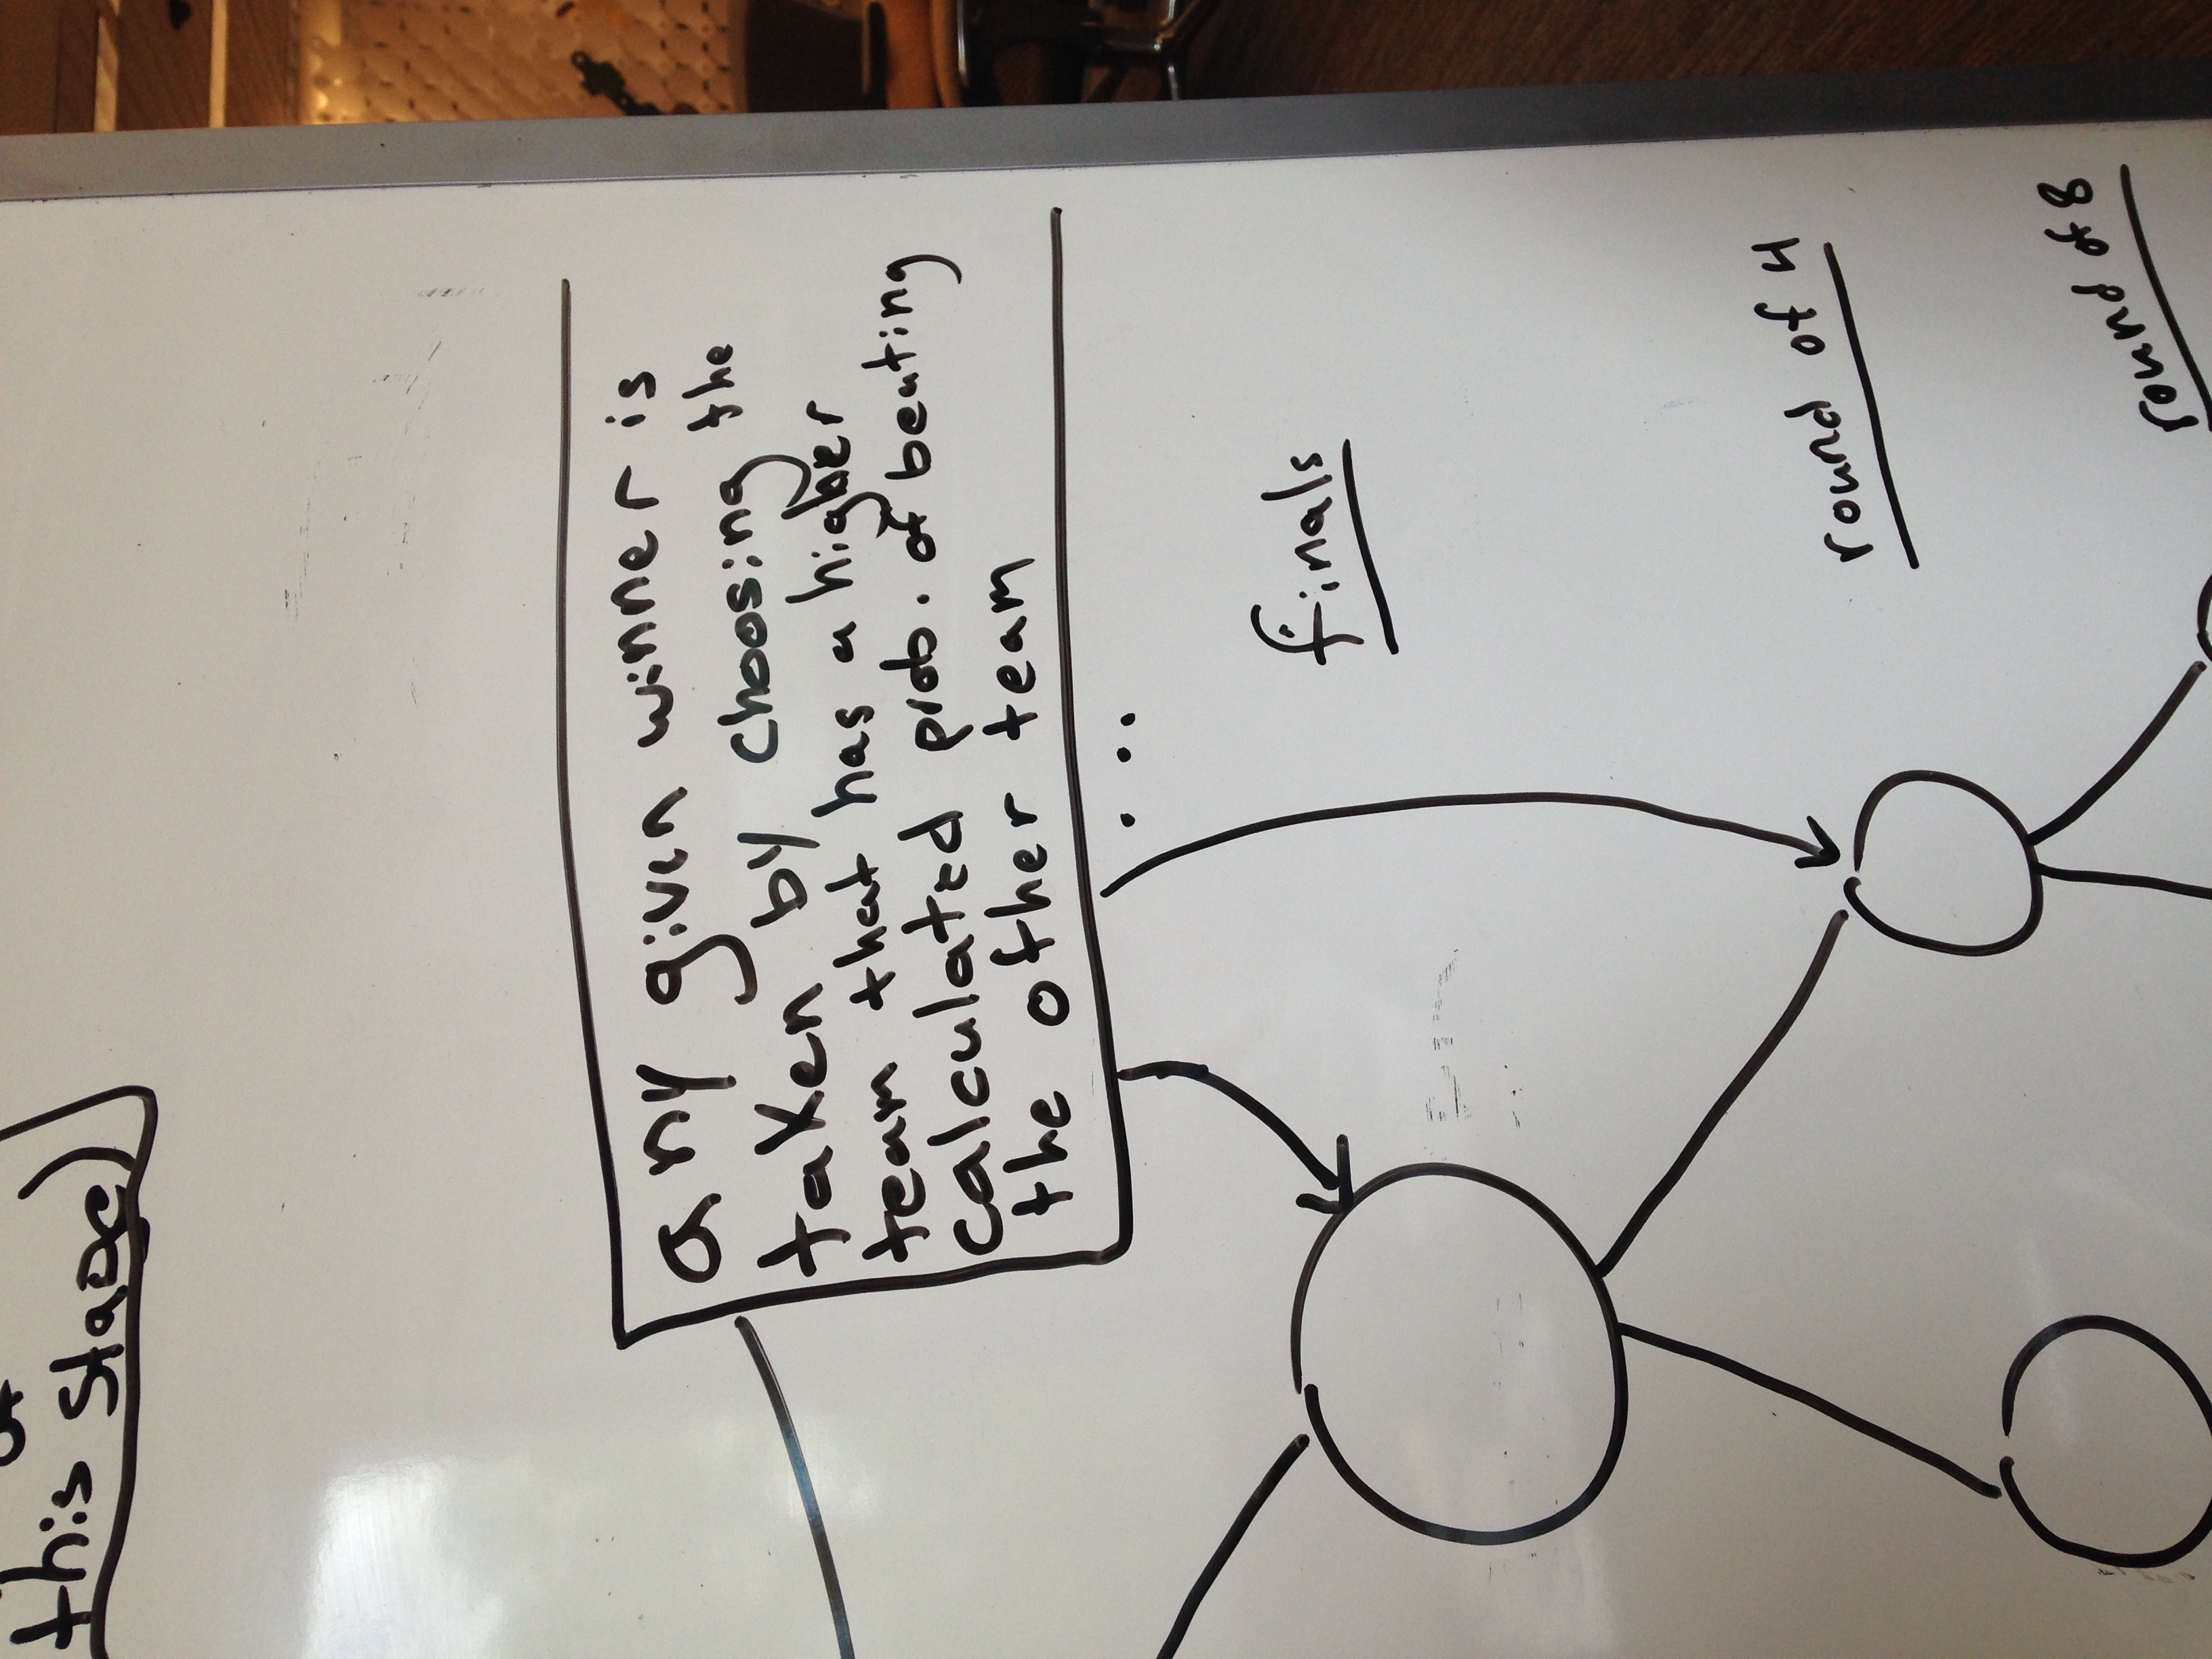 this stage)
any given winner is
taken by choosing the
team that has a higher
calculated prob. of beating
the other team
...
finals
round of 4
round of 8